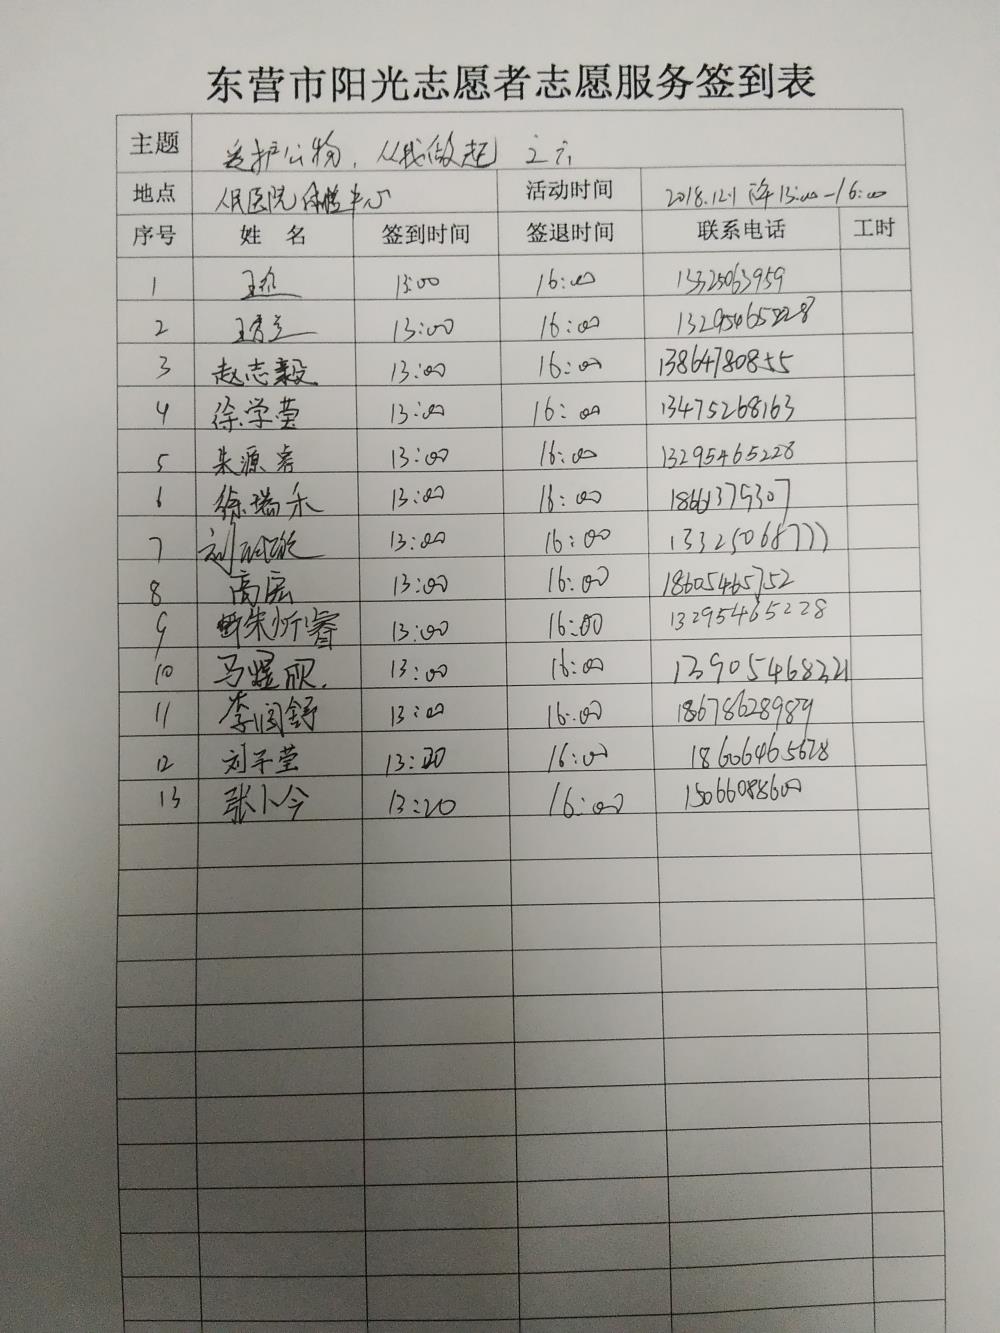 东营市阳光志愿者志愿服务签到表
主题 爱护公物，从我做起 之六
地点 人民医院体检中心 活动时间 2018.12.1 下午13:00-16:00
序号 姓 名 签到时间 签退时间 联系电话 工时
1 13:00 16:00 13325063959
2 13:00 16:00 13295465228
3 赵志毅 13:00 16:00 13864780855
4 徐学莹 13:00 16:00 13475268163
5 朱源睿 13:00 16:00 13295465228
6 徐瑞禾 13:00 16:00
7 刘 13:00 16:00 13325068777
8 高宏 13:00 16:00 18605465752
9 朱炘睿 13:00 16:00 13295465228
10 马煜砚 13:00 16:00 13905468321
11 李阅舒 13:00 16:00 18678628989
12 刘子莹 13:20 16:00 18606465628
13 张卜今 13:20 16:00 15066088600